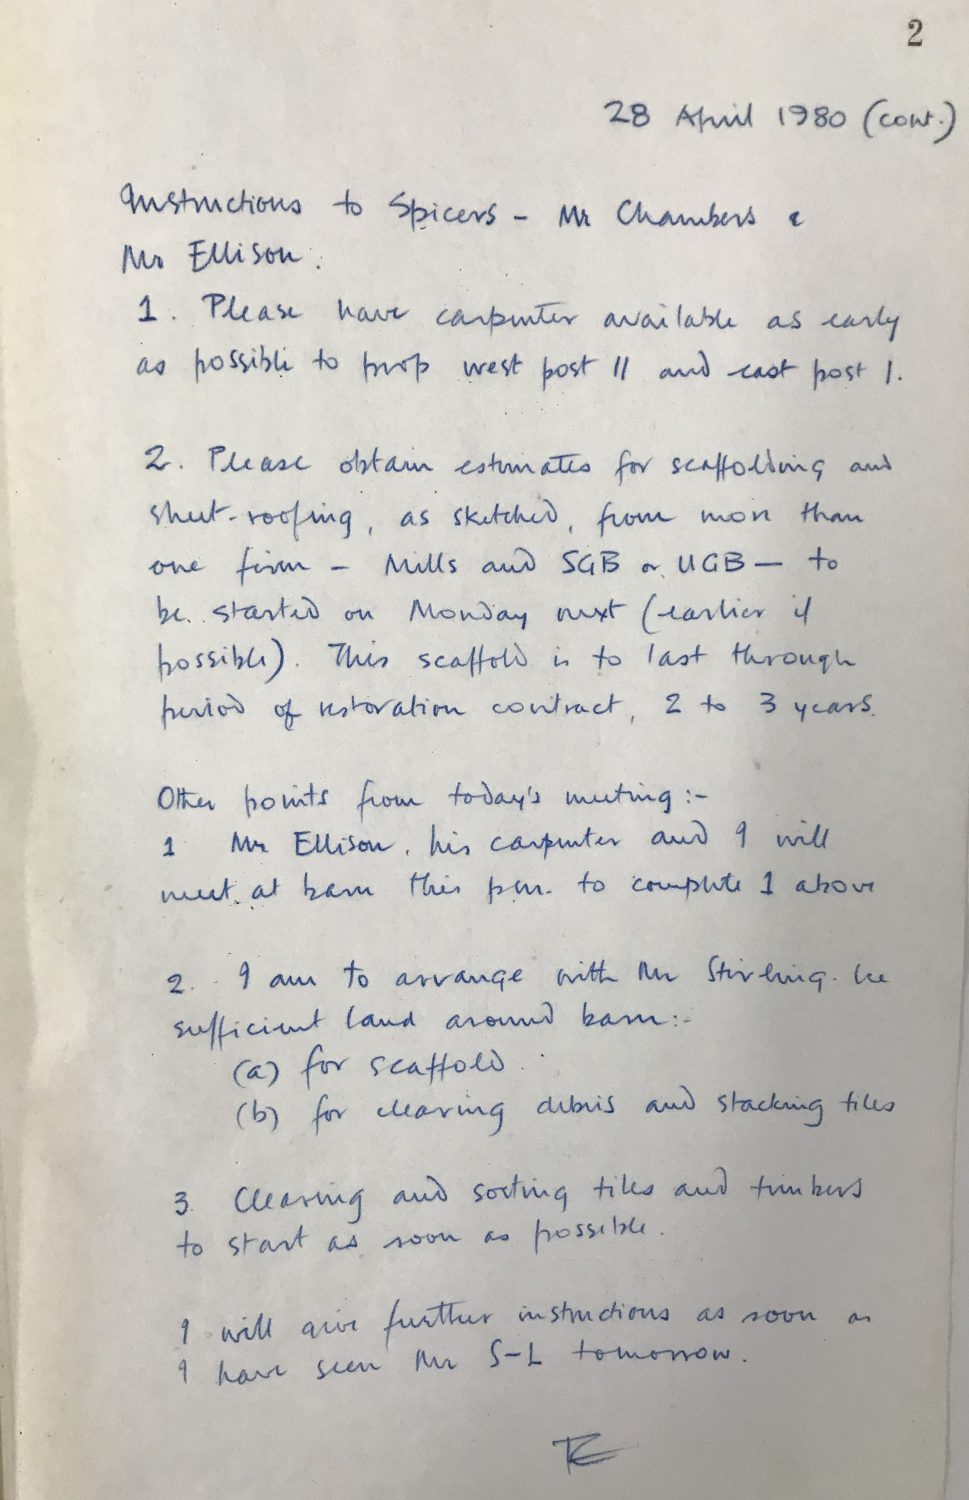 2
28 April 1980 (cont.)
Instructions to Spicers – Mr Chambers &
Mr Ellison:
1. Please have carpenter available as early
as possible to prop west post 11 and east post 1.
2. Please obtain estimates for scaffolding and
sheet-roofing, as sketched, from more than
one firm – Mills and SGB or UGB – to
be started on Monday next (earlier if
possible). This scaffold is to last through
period of restoration contract, 2 to 3 years.
Other points from today's meeting :-
1 Mr Ellison, his carpenter and I will
meet at barn this pm. to complete 1 above
2. I am to arrange with Mr Stirling. the
sufficient land around barn:-
(a) for scaffold.
(b) for clearing debris and stacking tiles
3. Clearing and sorting tiles and timbers
to start as soon as possible.
I will give further instructions as soon as
I have seen Mr S-L tomorrow.